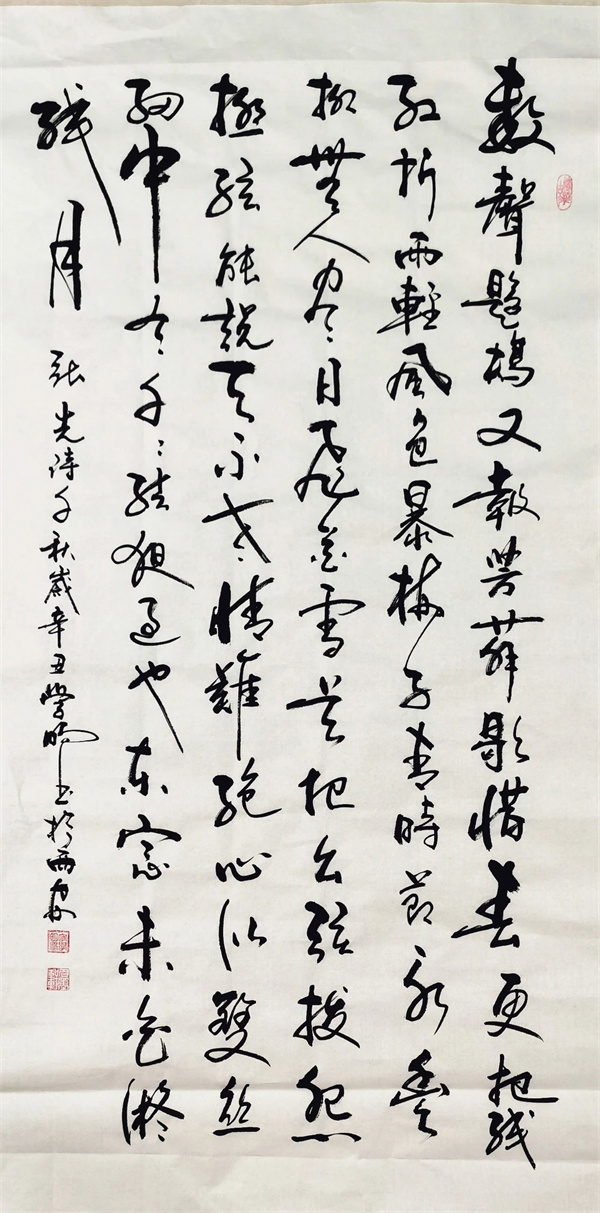 數聲鶗鴂又報芳菲歇惜春更把残
红折雨輕風色暴梅子青時節永豐
柳無人尽日飛花雪莫把幺弦撥怨
極弦能説天不老情難絕心似雙丝
網中有千々结夜过也东窗未白凝
残月
张先诗千秋歲辛丑學书於西安